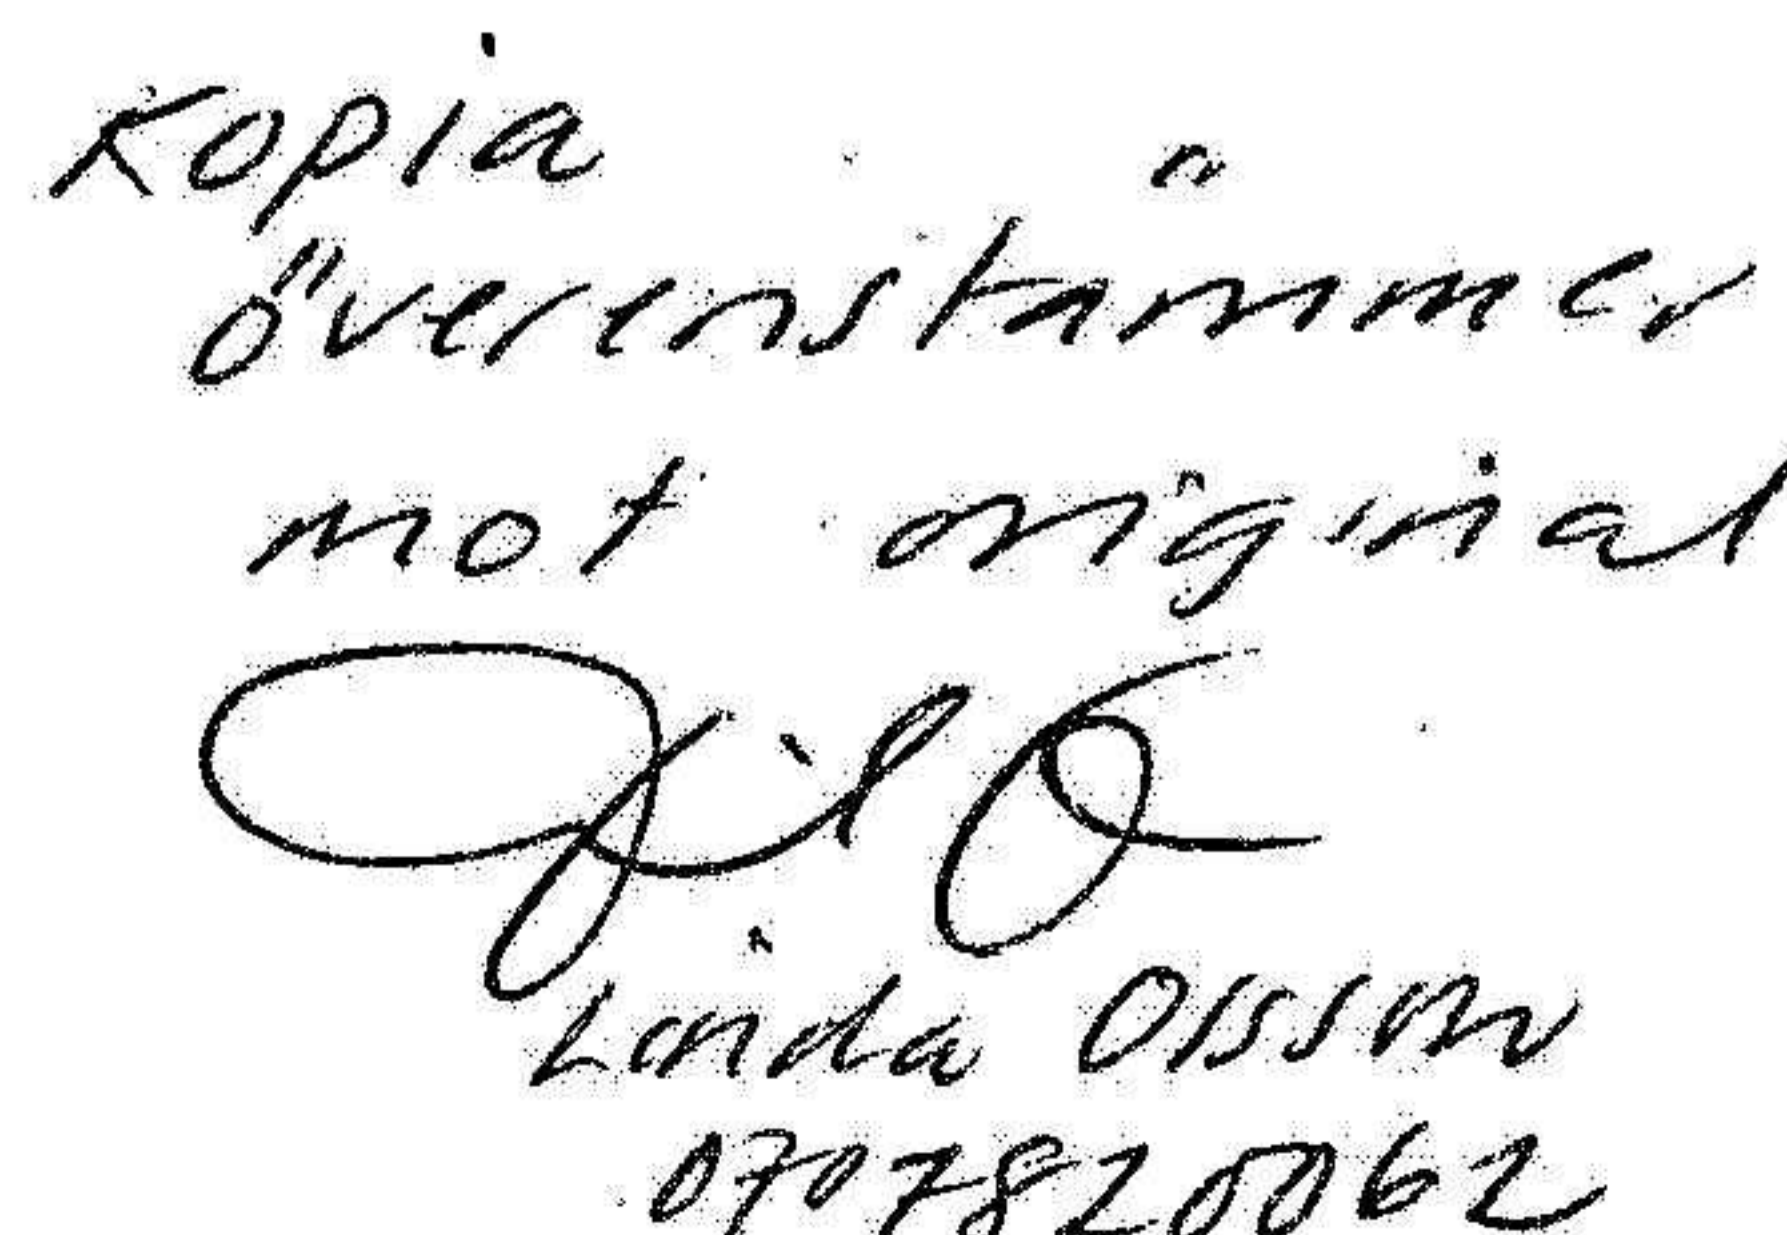 Kopia
överenstämmer
mot original
Linda Olsson
0707820062